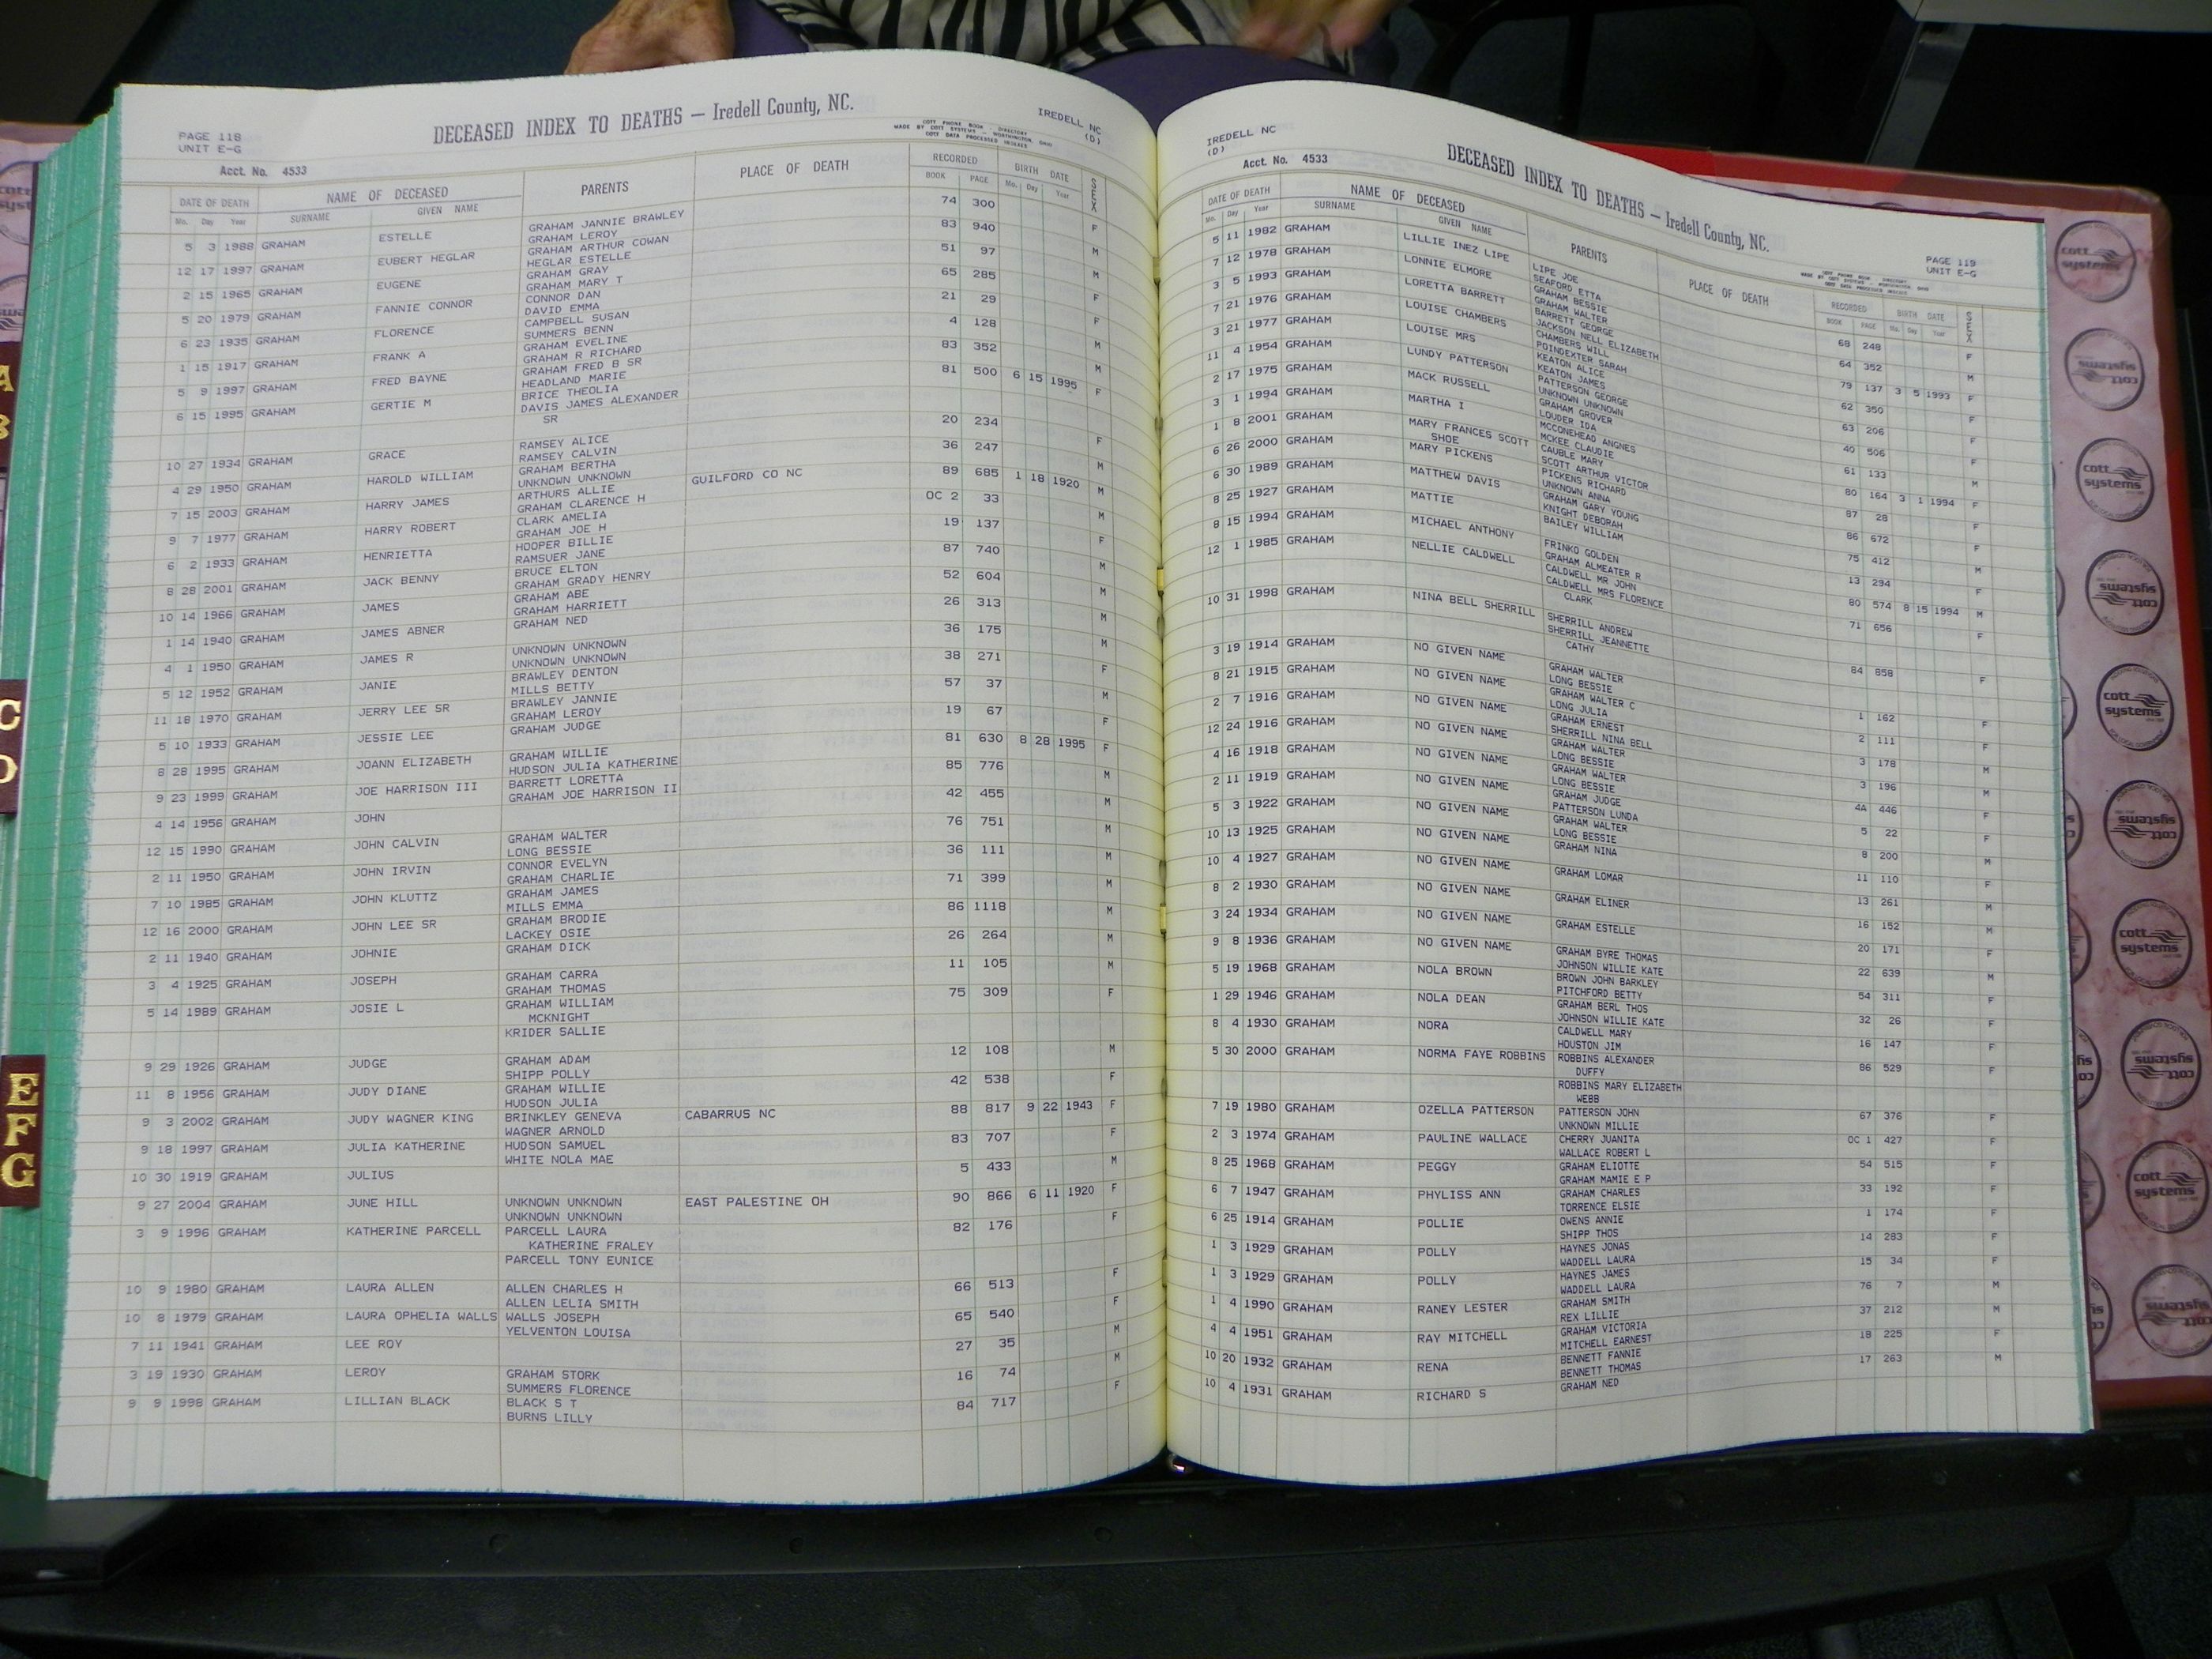 PAGE 118
UNIT E-G
DECEASED INDEX TO DEATHS — Iredell County, NC.
COTT PHONE BOOK - DIRECTORY
MADE BY COTT SYSTEMS - WORTHINGTON, OHIO
COTT DATA PROCESSED INDEXES
IREDELL NC
(D)
Acct. No. 4533
DATE OF DEATH NAME OF DECEASED PARENTS PLACE OF DEATH RECORDED BIRTH DATE SEX
Mo. Day Year SURNAME GIVEN NAME BOOK PAGE Mo. Day Year
5 3 1988 GRAHAM ESTELLE GRAHAM JANNIE BRAWLEY 74 300 F
GRAHAM LEROY
12 17 1997 GRAHAM EUBERT HEGLAR GRAHAM ARTHUR COWAN 83 940 M
HEGLAR ESTELLE
2 15 1965 GRAHAM EUGENE GRAHAM GRAY 51 97 M
GRAHAM MARY T
5 20 1979 GRAHAM FANNIE CONNOR CONNOR DAN 65 285 F
DAVID EMMA
6 23 1935 GRAHAM FLORENCE CAMPBELL SUSAN 21 29 F
SUMMERS BENN
1 15 1917 GRAHAM FRANK A GRAHAM EVELINE 4 128 M
GRAHAM R RICHARD
5 9 1997 GRAHAM FRED BAYNE GRAHAM FRED B SR 83 352 M
HEADLAND MARIE
6 15 1995 GRAHAM GERTIE M BRICE THEOLIA 81 500 6 15 1995 F
DAVIS JAMES ALEXANDER
SR
10 27 1934 GRAHAM GRACE RAMSEY ALICE 20 234 F
RAMSEY CALVIN
4 29 1950 GRAHAM HAROLD WILLIAM GRAHAM BERTHA 36 247 M
UNKNOWN UNKNOWN
7 15 2003 GRAHAM HARRY JAMES ARTHURS ALLIE GUILFORD CO NC 89 685 1 18 1920 M
GRAHAM CLARENCE H
9 7 1977 GRAHAM HARRY ROBERT CLARK AMELIA OC 2 33 M
GRAHAM JOE H
6 2 1933 GRAHAM HENRIETTA HOOPER BILLIE 19 137 F
RAMSUER JANE
8 28 2001 GRAHAM JACK BENNY BRUCE ELTON 87 740 M
GRAHAM GRADY HENRY
10 14 1966 GRAHAM JAMES GRAHAM ABE 52 604 M
GRAHAM HARRIETT
1 14 1940 GRAHAM JAMES ABNER GRAHAM NED 26 313 M
4 1 1950 GRAHAM JAMES R UNKNOWN UNKNOWN 36 175 M
UNKNOWN UNKNOWN
5 12 1952 GRAHAM JANIE BRAWLEY DENTON 38 271 F
MILLS BETTY
11 18 1970 GRAHAM JERRY LEE SR BRAWLEY JANNIE 57 37 M
GRAHAM LEROY
5 10 1933 GRAHAM JESSIE LEE GRAHAM JUDGE 19 67 F
8 28 1995 GRAHAM JOANN ELIZABETH GRAHAM WILLIE 81 630 8 28 1995 F
HUDSON JULIA KATHERINE
9 23 1999 GRAHAM JOE HARRISON III BARRETT LORETTA 85 776 M
GRAHAM JOE HARRISON II
4 14 1956 GRAHAM JOHN 42 455 M
12 15 1990 GRAHAM JOHN CALVIN GRAHAM WALTER 76 751 M
LONG BESSIE
2 11 1950 GRAHAM JOHN IRVIN CONNOR EVELYN 36 111 M
GRAHAM CHARLIE
7 10 1985 GRAHAM JOHN KLUTTZ GRAHAM JAMES 71 399 M
MILLS EMMA
12 16 2000 GRAHAM JOHN LEE SR GRAHAM BRODIE 86 1118 M
LACKEY OSIE
2 11 1940 GRAHAM JOHNIE GRAHAM DICK 26 264 M
3 4 1925 GRAHAM JOSEPH GRAHAM CARRA 11 105 M
GRAHAM THOMAS
5 14 1989 GRAHAM JOSIE L GRAHAM WILLIAM 75 309 F
MCKNIGHT
KRIDER SALLIE
9 29 1926 GRAHAM JUDGE GRAHAM ADAM 12 108 M
SHIPP POLLY
11 8 1956 GRAHAM JUDY DIANE GRAHAM WILLIE 42 538 F
HUDSON JULIA
9 3 2002 GRAHAM JUDY WAGNER KING BRINKLEY GENEVA CABARRUS NC 88 817 9 22 1943 F
WAGNER ARNOLD
9 18 1997 GRAHAM JULIA KATHERINE HUDSON SAMUEL 83 707 F
WHITE NOLA MAE
10 30 1919 GRAHAM JULIUS 5 433 M
9 27 2004 GRAHAM JUNE HILL UNKNOWN UNKNOWN EAST PALESTINE OH 90 866 6 11 1920 F
UNKNOWN UNKNOWN
3 9 1996 GRAHAM KATHERINE PARCELL PARCELL LAURA 82 176 F
KATHERINE FRALEY
PARCELL TONY EUNICE
10 9 1980 GRAHAM LAURA ALLEN ALLEN CHARLES H 66 513 F
ALLEN LELIA SMITH
10 8 1979 GRAHAM LAURA OPHELIA WALLS WALLS JOSEPH 65 540 F
YELVENTON LOUISA
7 11 1941 GRAHAM LEE ROY 27 35 M
3 19 1930 GRAHAM LEROY GRAHAM STORK 16 74 M
SUMMERS FLORENCE
9 9 1998 GRAHAM LILLIAN BLACK BLACK S T 84 717 F
BURNS LILLY
IREDELL NC
(D)
DECEASED INDEX TO DEATHS — Iredell County, NC.
PAGE 119
UNIT E-G
Acct. No. 4533
DATE OF DEATH NAME OF DECEASED PARENTS PLACE OF DEATH RECORDED BIRTH DATE SEX
Mo. Day Year SURNAME GIVEN NAME BOOK PAGE Mo. Day Year
5 11 1982 GRAHAM LILLIE INEZ LIPE LIPE JOE 68 248 F
SEAFORD ETTA
7 12 1978 GRAHAM LONNIE ELMORE GRAHAM BESSIE 64 352 M
GRAHAM WALTER
3 5 1993 GRAHAM LORETTA BARRETT BARRETT GEORGE 79 137 3 5 1993 F
JACKSON NELL ELIZABETH
7 21 1976 GRAHAM LOUISE CHAMBERS CHAMBERS WILL 62 350 F
POINDEXTER SARAH
3 21 1977 GRAHAM LOUISE MRS KEATON ALICE 63 206 F
KEATON JAMES
11 4 1954 GRAHAM LUNDY PATTERSON PATTERSON GEORGE 40 506 F
UNKNOWN UNKNOWN
2 17 1975 GRAHAM MACK RUSSELL GRAHAM GROVER 61 133 M
LOUDER IDA
3 1 1994 GRAHAM MARTHA I MCCONEHEAD ANGNES 80 164 3 1 1994 F
MCKEE CLAUDIE
1 8 2001 GRAHAM MARY FRANCES SCOTT CAUBLE MARY 87 28 F
SHOE SCOTT ARTHUR VICTOR
6 26 2000 GRAHAM MARY PICKENS PICKENS RICHARD 86 672 F
UNKNOWN ANNA
6 30 1989 GRAHAM MATTHEW DAVIS GRAHAM GARY YOUNG 75 412 M
KNIGHT DEBORAH
8 25 1927 GRAHAM MATTIE BAILEY WILLIAM 13 294 F
8 15 1994 GRAHAM MICHAEL ANTHONY FRINKO GOLDEN 80 574 8 15 1994 M
GRAHAM ALMEATER R
12 1 1985 GRAHAM NELLIE CALDWELL CALDWELL MR JOHN 71 656 F
CALDWELL MRS FLORENCE
CLARK
10 31 1998 GRAHAM NINA BELL SHERRILL SHERRILL ANDREW 84 858 F
SHERRILL JEANNETTE
CATHY
3 19 1914 GRAHAM NO GIVEN NAME GRAHAM WALTER 1 162 F
LONG BESSIE
8 21 1915 GRAHAM NO GIVEN NAME GRAHAM WALTER C 2 111 F
LONG JULIA
2 7 1916 GRAHAM NO GIVEN NAME GRAHAM ERNEST 3 178 M
SHERRILL NINA BELL
12 24 1916 GRAHAM NO GIVEN NAME GRAHAM WALTER 3 196 M
LONG BESSIE
4 16 1918 GRAHAM NO GIVEN NAME GRAHAM WALTER 4A 446 F
LONG BESSIE
2 11 1919 GRAHAM NO GIVEN NAME GRAHAM JUDGE 5 22 F
PATTERSON LUNDA
5 3 1922 GRAHAM NO GIVEN NAME GRAHAM WALTER 8 200 M
LONG BESSIE
10 13 1925 GRAHAM NO GIVEN NAME GRAHAM NINA 11 110 F
10 4 1927 GRAHAM NO GIVEN NAME GRAHAM LOMAR 13 261 M
8 2 1930 GRAHAM NO GIVEN NAME GRAHAM ELINER 16 152 M
3 24 1934 GRAHAM NO GIVEN NAME GRAHAM ESTELLE 20 171 F
9 8 1936 GRAHAM NO GIVEN NAME GRAHAM BYRE THOMAS 22 639 M
JOHNSON WILLIE KATE
5 19 1968 GRAHAM NOLA BROWN BROWN JOHN BARKLEY 54 311 F
PITCHFORD BETTY
1 29 1946 GRAHAM NOLA DEAN GRAHAM BERL THOS 32 26 F
JOHNSON WILLIE KATE
8 4 1930 GRAHAM NORA CALDWELL MARY 16 147 F
HOUSTON JIM
5 30 2000 GRAHAM NORMA FAYE ROBBINS ROBBINS ALEXANDER 86 529 F
DUFFY
ROBBINS MARY ELIZABETH
WEBB
7 19 1980 GRAHAM OZELLA PATTERSON PATTERSON JOHN 67 376 F
UNKNOWN MILLIE
2 3 1974 GRAHAM PAULINE WALLACE CHERRY JUANITA OC 1 427 F
WALLACE ROBERT L
8 25 1968 GRAHAM PEGGY GRAHAM ELIOTTE 54 515 F
GRAHAM MAMIE E P
6 7 1947 GRAHAM PHYLISS ANN GRAHAM CHARLES 33 192 F
TORRENCE ELSIE
6 25 1914 GRAHAM POLLIE OWENS ANNIE 1 174 F
SHIPP THOS
1 3 1929 GRAHAM POLLY HAYNES JONAS 14 283 F
WADDELL LAURA
1 3 1929 GRAHAM POLLY HAYNES JAMES 15 34 F
WADDELL LAURA
1 4 1990 GRAHAM RANEY LESTER GRAHAM SMITH 76 7 M
REX LILLIE
4 4 1951 GRAHAM RAY MITCHELL GRAHAM VICTORIA 37 212 M
MITCHELL EARNEST
10 20 1932 GRAHAM RENA BENNETT FANNIE 18 225 F
BENNETT THOMAS
10 4 1931 GRAHAM RICHARD S GRAHAM NED 17 263 M
A
C
E
F
G
cott systems
cott systems
cott systems
cott systems
cott systems
cott systems
cott systems
cott systems
cott systems